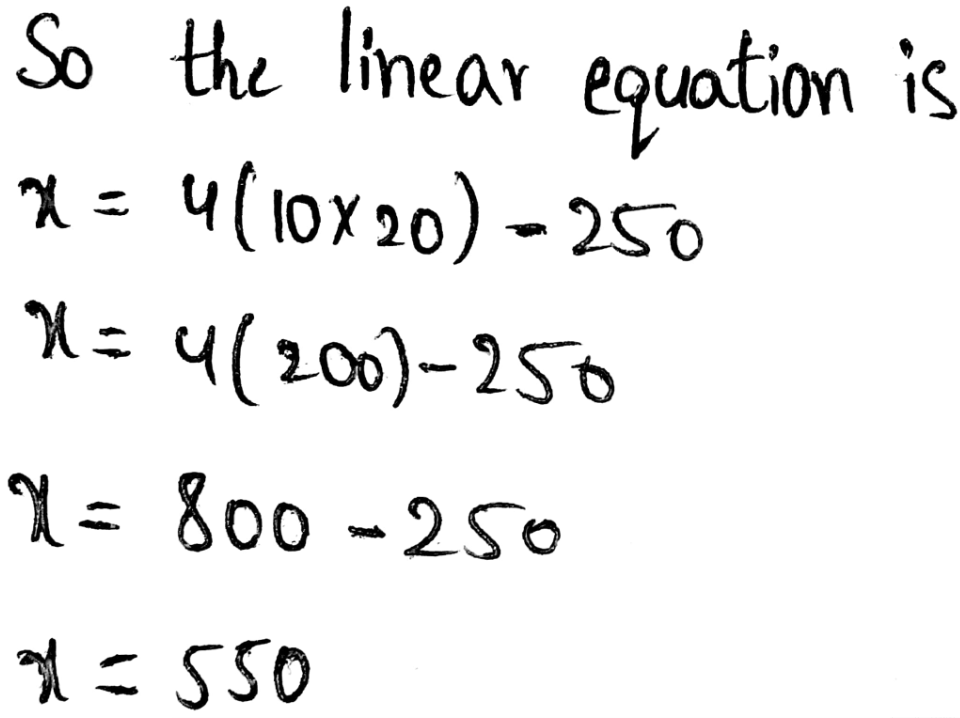 So the linear equation is
x = 4(10×20) - 250
x = 4(200) - 250
x = 800 - 250
x = 550